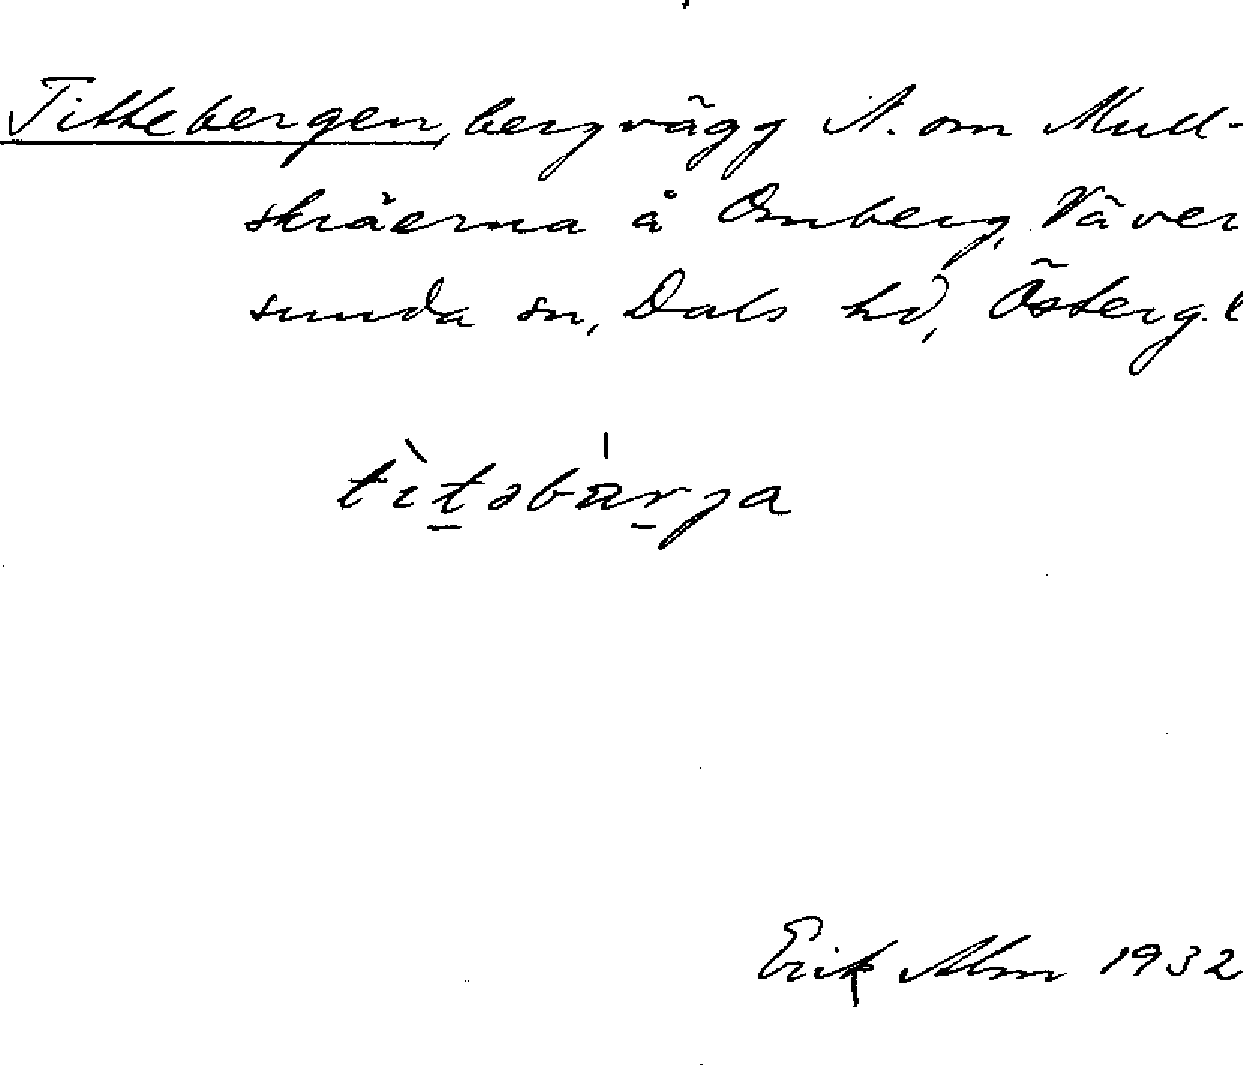 Tittebergen, bergvägg N. om Mull-
skräerna å Omberg, Väver
sunda sn, Dals hd, Österg.l
tìtəbàrja
Erik Alm 1932